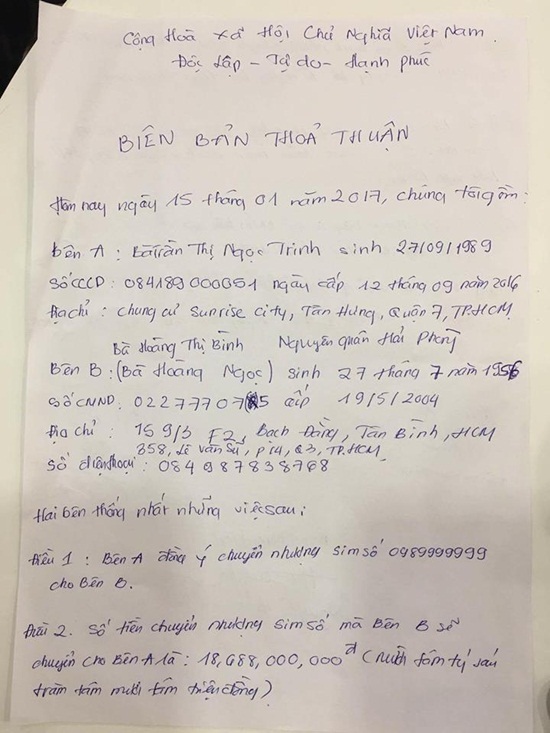 Cộng Hoà Xã Hội Chủ Nghĩa Việt Nam.
Độc Lập - Tự do - Hạnh phúc
BIÊN BẢN THOẢ THUẬN
Hôm nay ngày 15 tháng 01 năm 2017, chúng tôi gồm:
Bên A : Bà Trần Thị Ngọc Trinh sinh 27/09/1989
Số CCCD : 084189000051 ngày cấp 12 tháng 09 năm 2016
Địa chỉ : chung cư Sunrise City, Tân Hưng, Quận 7, TP.HCM
Bà Hoàng Thị Bình Nguyên quán Hải Phòng
Bên B : (Bà Hoàng Ngọc) sinh 27 tháng 7 năm 1956
Số CMND : cấp 19/5/2004
Địa chỉ : 159/3 F2, Bạch Đằng, Tân Bình, HCM
358, Lê Văn Sỹ, P14, Q3, TP.HCM
Số điện thoại : 084987838768
Hai bên thống nhất những việc sau:
Điều 1 : Bên A đồng ý chuyển nhượng sim số 0989999999
cho Bên B.
Điều 2. Số tiền chuyển nhượng sim số mà Bên B sẽ
chuyển cho Bên A là : 18,688,000,000đ (Mười tám tỷ sáu
trăm tám mươi tám triệu đồng)